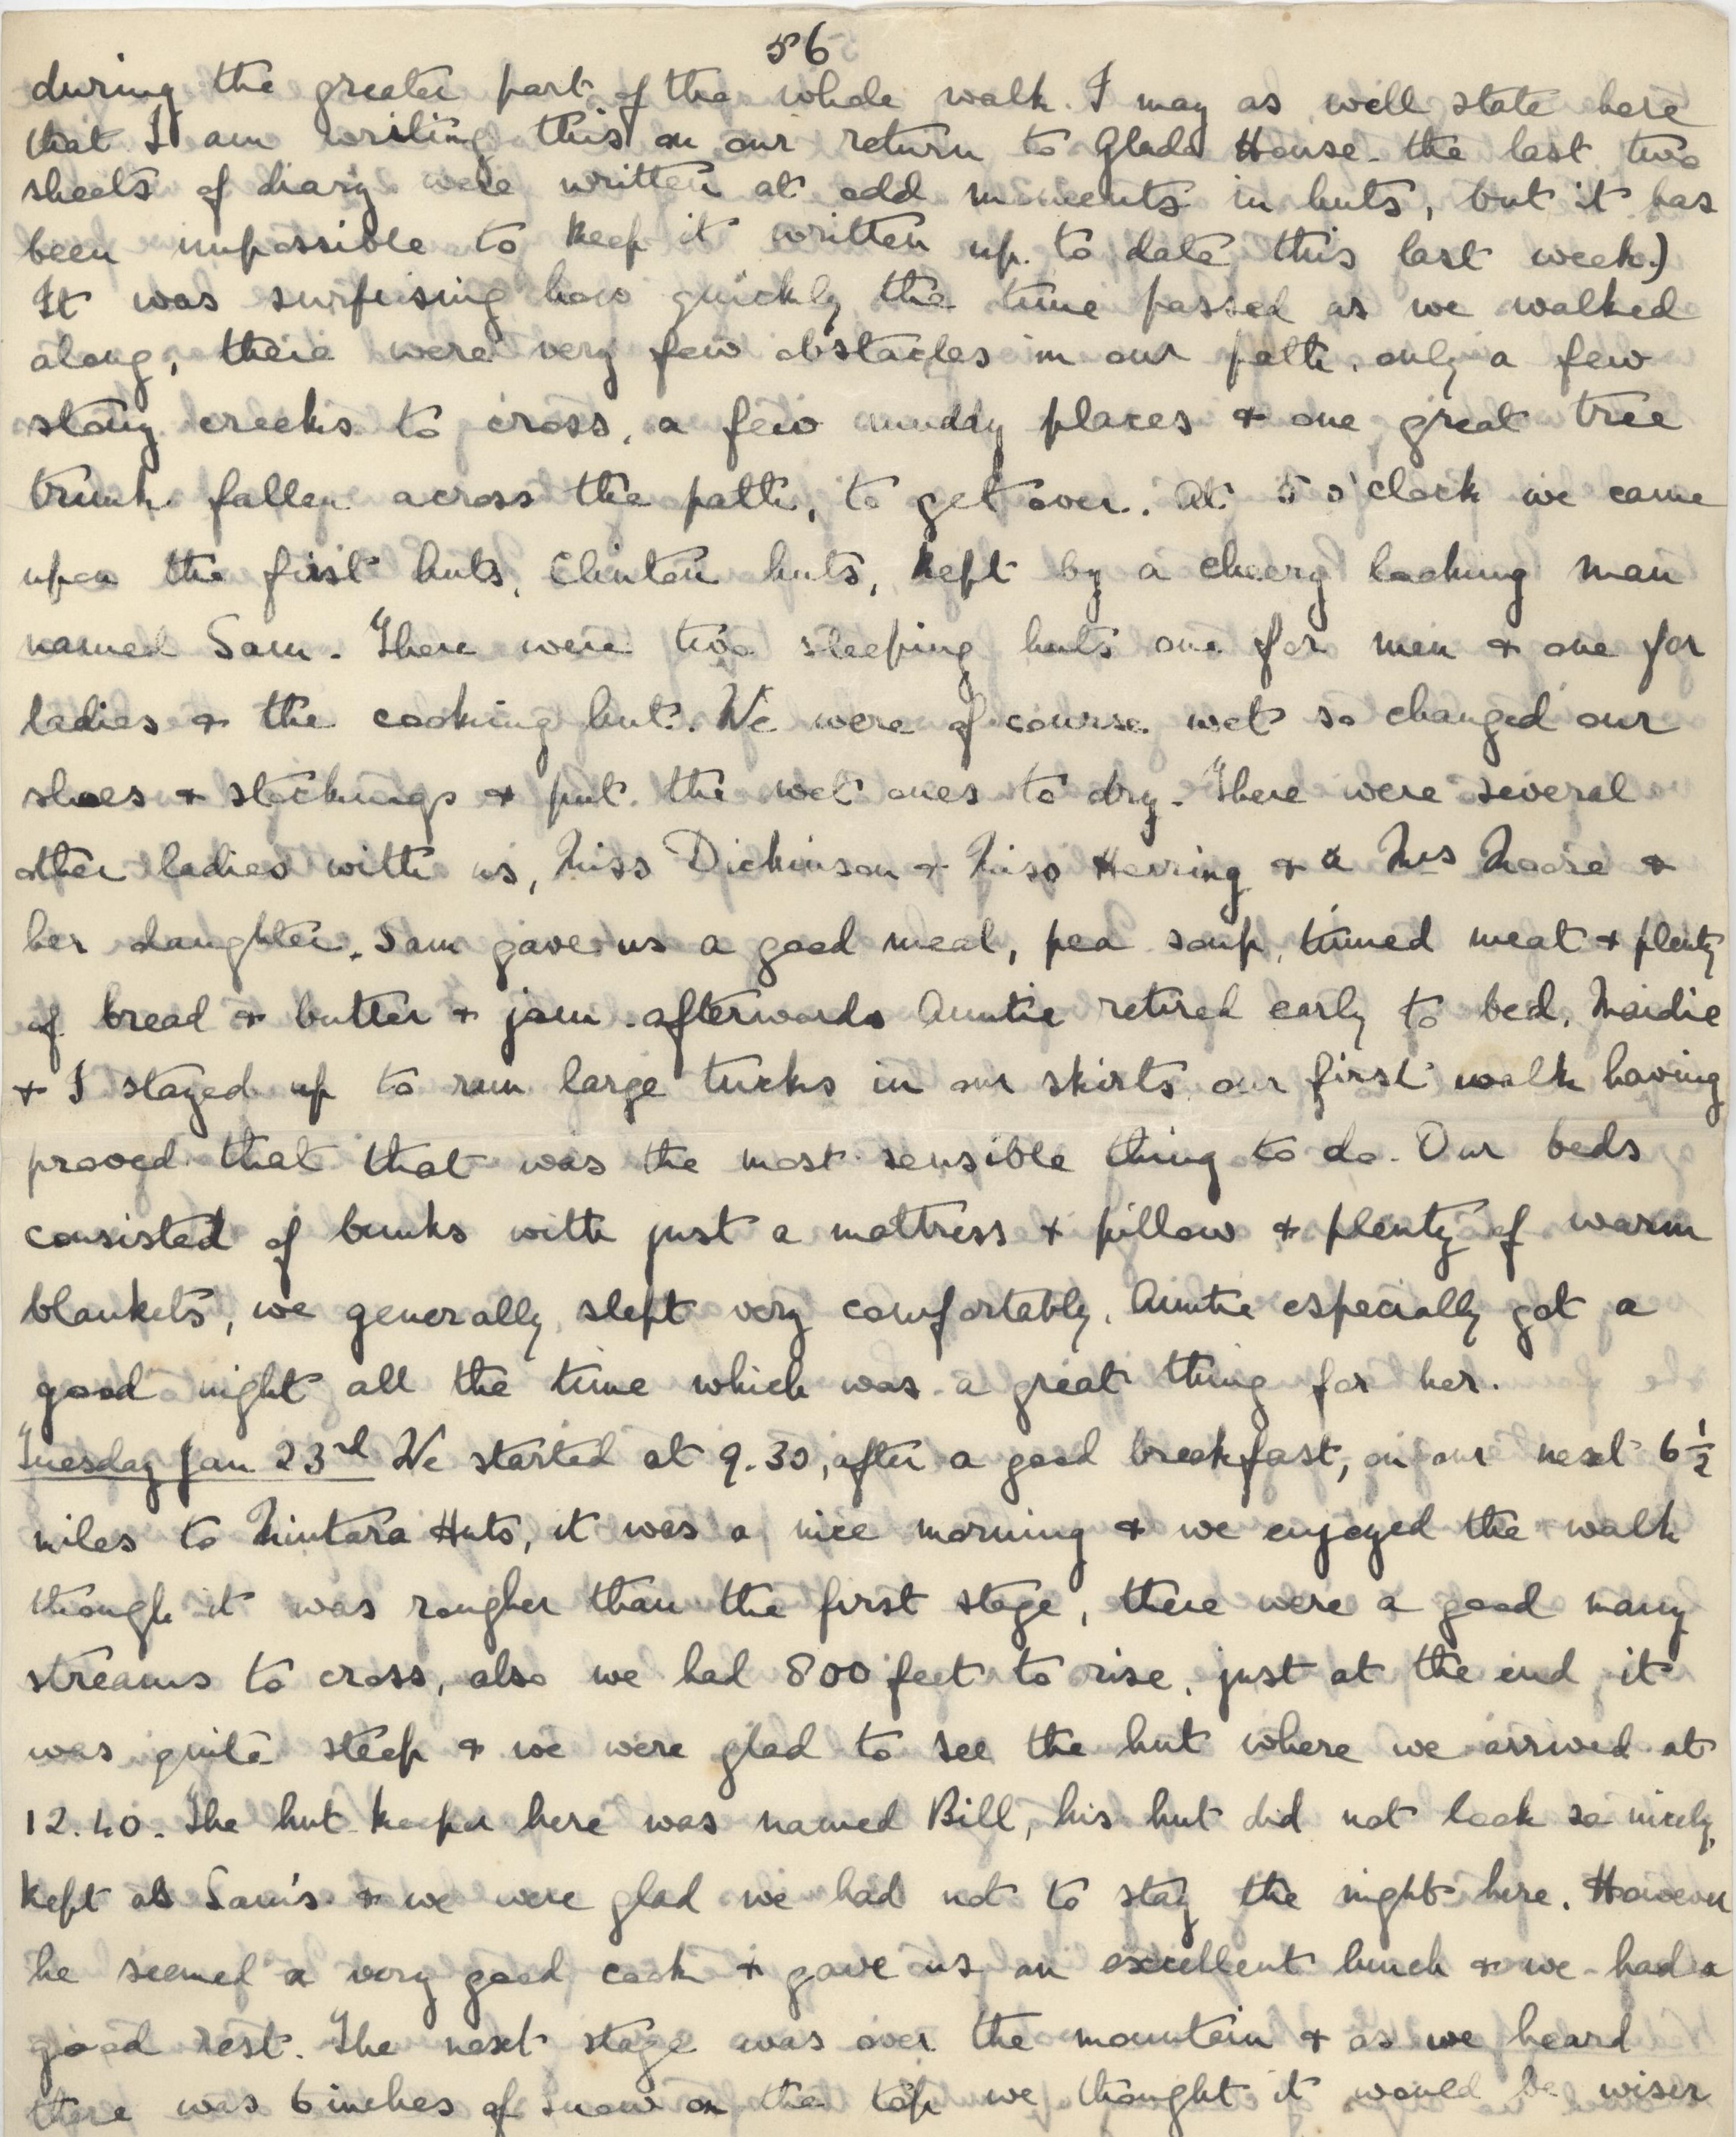 56
during the greater part of the whole walk. I may as well state here
that I am writing this on our return to Glade House. the last two
sheets of diary were written at odd moments in huts, but it has
been impossible to keep it written up to date this last week.)
It was surprising how quickly the time passed as we walked
along, there were very few obstacles in our path. only a few
stony creeks to cross, a few muddy places & one great tree
trunk fallen across the path, to get over. At 5 o'clock we came
upon the first huts, Clinton huts, kept by a cheery looking man
named Sam. There were two sleeping huts one for men & one for
ladies & the cooking hut. We were of course wet so changed our
shoes & stockings & put the wet ones to dry. There were several
other ladies with us, Miss Dickinson & Miss Herring & a Mrs Moore &
her daughter. Sam gave us a good meal, pea soup, tinned meat & plenty
of bread & butter & jam. afterwards Auntie retired early to bed, Maidie
& I stayed up to run large tucks in our skirts, our first walk having
proved that that was the most sensible thing to do. Our beds
consisted of bunks with just a mattress & pillow & plenty of warm
blankets, we generally slept very comfortably, Auntie especially got a
good night all the time which was a great thing for her.
Tuesday Jan 23rd We started at 9.30, after a good breakfast, on our next 6½
miles to Mintara Huts, it was a nice morning & we enjoyed the walk
though it was rougher than the first stage, there were a good many
streams to cross, also we had 800 feet to rise, just at the end it
was quite steep & we were glad to see the hut where we arrived at
12.40. The hut keeper here was named Bill, his hut did not look so nicely
kept as Sam's & we were glad we had not to stay the night here. However
he seemed a very good cook & gave us an excellent lunch & we had a
good rest. The next stage was over the mountain & as we heard
there was 6 inches of snow on the top we thought it would be wiser